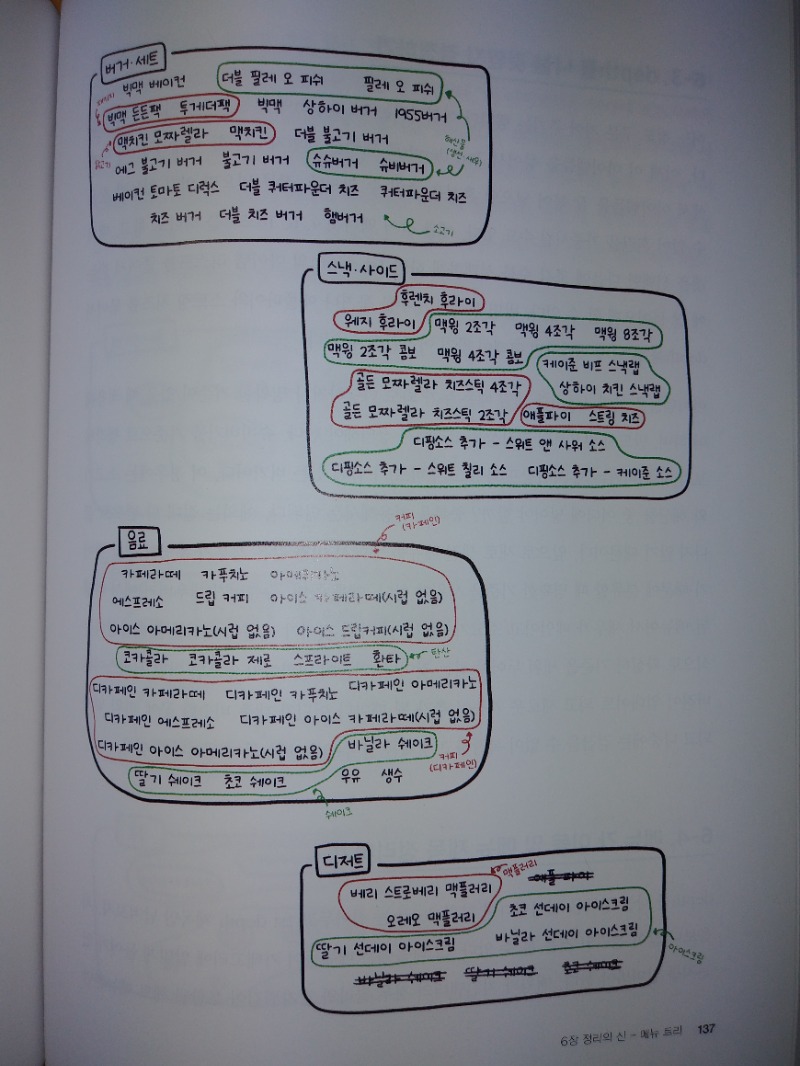 버거·세트
빅맥 베이컨 더블 필레 오 피쉬 필레 오 피쉬
빅맥 든든팩 투게더팩 빅맥 상하이 버거 1955버거
맥치킨 모짜렐라 맥치킨 더블 불고기 버거
해산물
(생선, 새우)
에그 불고기 버거 불고기 버거 슈슈버거 슈비버거
베이컨 토마토 디럭스 더블 쿼터파운더 치즈 쿼터파운더 치즈
치즈 버거 더블 치즈 버거 햄버거
소고기
스낵·사이드
후렌치 후라이
웨지 후라이 맥윙 2조각 맥윙 4조각 맥윙 8조각
맥윙 2조각 콤보 맥윙 4조각 콤보 케이준 비프 스낵랩
상하이 치킨 스낵랩
골든 모짜렐라 치즈스틱 4조각
골든 모짜렐라 치즈스틱 2조각 애플파이 스트링 치즈
디핑소스 추가 - 스위트 앤 사워 소스
디핑소스 추가 - 스위트 칠리 소스 디핑소스 추가 - 케이준 소스
커피
(카페인)
음료
카페라떼 카푸치노 아메리카노
에스프레소 드립 커피 아이스 카페라떼(시럽 없음)
아이스 아메리카노(시럽 없음) 아이스 드립커피(시럽 없음)
코카콜라 코카콜라 제로 스프라이트 환타 탄산
디카페인 카페라떼 디카페인 카푸치노 디카페인 아메리카노
디카페인 에스프레소 디카페인 아이스 카페라떼(시럽 없음)
디카페인 아이스 아메리카노(시럽 없음) 바닐라 쉐이크
커피
(디카페인)
딸기 쉐이크 초코 쉐이크 우유 생수
쉐이크
디저트
맥플러리
베리 스트로베리 맥플러리 애플 파이
오레오 맥플러리 초코 선데이 아이스크림
딸기 선데이 아이스크림 바닐라 선데이 아이스크림
아이스크림
바닐라 쉐이크 딸기 쉐이크 초코 쉐이크
6장 정리의 신 - 메뉴 트리 137